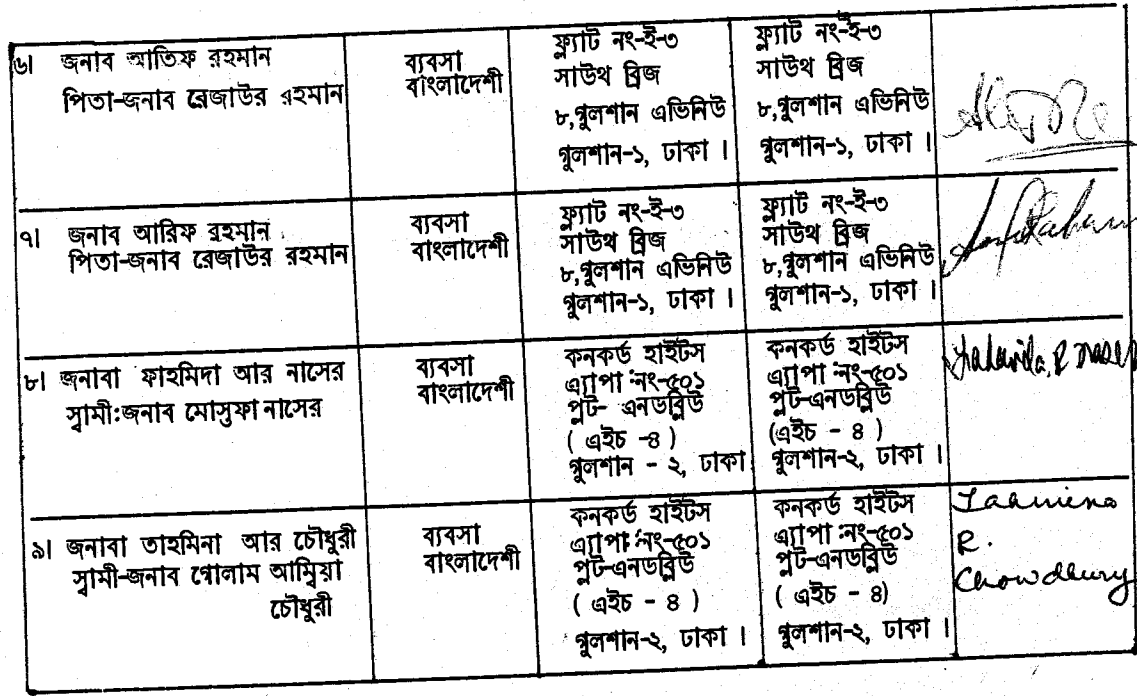 ৬। জনাব আতিফ রহমান
পিতা-জনাব রেজাউর রহমান
ব্যবসা
বাংলাদেশী
ফ্ল্যাট নং-ই-৩
সাউথ ব্রিজ
৮,গুলশান এভিনিউ
গুলশান-১, ঢাকা ।
ফ্ল্যাট নং-ই-৩
সাউথ ব্রিজ
৮,গুলশান এভিনিউ
গুলশান-১, ঢাকা ।
৭। জনাব আরিফ রহমান
পিতা-জনাব রেজাউর রহমান
ব্যবসা
বাংলাদেশী
ফ্ল্যাট নং-ই-৩
সাউথ ব্রিজ
৮,গুলশান এভিনিউ
গুলশান-১, ঢাকা ।
ফ্ল্যাট নং-ই-৩
সাউথ ব্রিজ
৮,গুলশান এভিনিউ
গুলশান-১, ঢাকা ।
৮। জনাবা ফাহমিদা আর নাসের
স্বামী:জনাব মোস্তফা নাসের
ব্যবসা
বাংলাদেশী
কনকর্ড হাইটস
এ্যাপাঃনং-৫০১
প্লট- এনডব্লিউ
( এইচ -৪ )
গুলশান - ২, ঢাকা
কনকর্ড হাইটস
এ্যাপাঃনং-৫০১
প্লট-এনডব্লিউ
(এইচ - ৪ )
গুলশান-২, ঢাকা ।
৯। জনাবা তাহমিনা আর চৌধুরী
স্বামী-জনাব গোলাম আম্বিয়া
চৌধুরী
ব্যবসা
বাংলাদেশী
কনকর্ড হাইটস
এ্যাপাঃনং-৫০১
প্লট-এনডব্লিউ
( এইচ - ৪ )
গুলশান-২, ঢাকা ।
কনকর্ড হাইটস
এ্যাপাঃনং-৫০১
প্লট-এনডব্লিউ
( এইচ - ৪)
গুলশান-২, ঢাকা ।
Tahmina
R.
Chowdhury